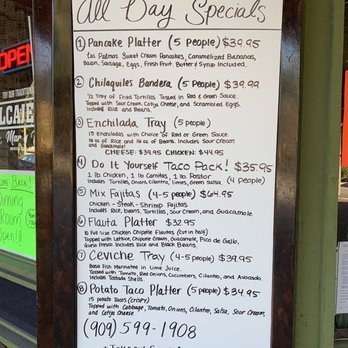 All Day Specials
OPEN
TRY OUR TRADITIONAL
1 Pancake Platter (5 people) $39.95
Las Palmas Sweet Cream Pancakes, Caramelized Bananas,
Bacon, Sausage, Eggs, Fresh Fruit, Butter & Syrup Included.
2 Chilaquiles Bandera (5 people) $39.99
1/2 Tray of Fried Tortillas Tossed in Red & Green Sauce.
Topped with Sour Cream, Cotija Cheese, and Scrambled Eggs.
Includes Rice and Beans.
3 Enchilada Tray (5 people)
15 Enchiladas with Choice of Red or Green Sauce.
16 oz of Rice and 16 oz of Beans. Includes Sour Cream
and Guacamole!
CHEESE: $39.95 CHICKEN: $44.95
4 Do It Yourself Taco Pack! $35.95
1 lb Chicken, 1 lb Carnitas, 1 lb Pastor
Includes: Tortillas, Onions, Cilantro, Limes, Green Salsa (4 people)
5 Mix Fajitas (4-5 people) $64.95
Chicken - Steak - Shrimp Fajitas
Includes Rice, Beans, Tortillas, Sour Cream, and Guacamole.
6 Flauta Platter $32.95
10 Full Size Chicken Chipotle Flautas (cut in half)
Topped with Lettuce, Chipotle Cream, Guacamole, Pico de Gallo,
Queso Fresco. Includes Rice and Black Beans.
7 Ceviche Tray (4-5 people) $39.95
Bass Fish Marinated in Lime Juice.
Tossed with Tomato, Red Onions, Cucumbers, Cilantro, and Avocado.
Includes Tostada Shells.
8 Potato Taco Platter (5 people) $34.95
15 Potato Tacos (crispy)
Topped with Cabbage, Tomato, Onions, Cilantro, Salsa, Sour Cream,
and Cotija Cheese
(909) 599-1908
Dining
Room
Open!!